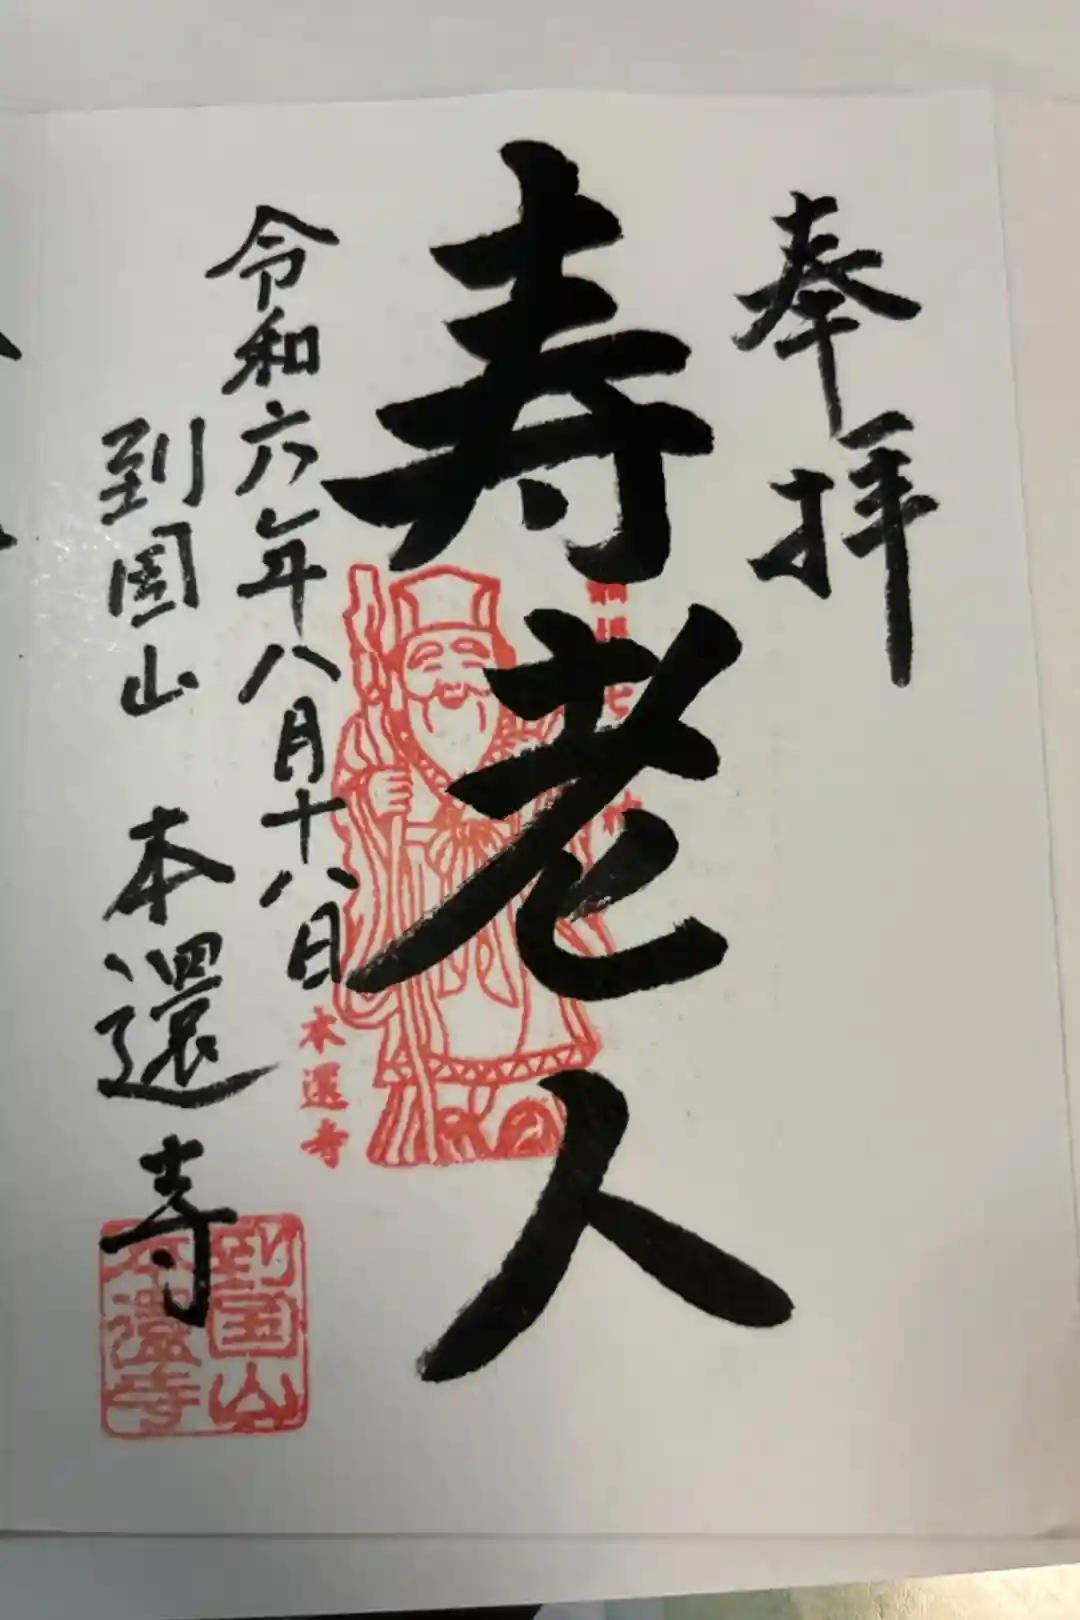 奉拝
寿老人
令和六年八月十八日
到国山 本還寺
本還寺
到国山
本還寺